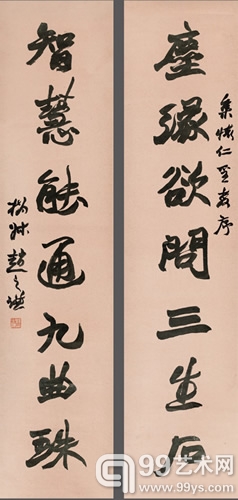 塵緣欲問三生后
集懷仁聖教序
智慧能通九曲珠
撝叔趙之謙
99艺术网
www.99ys.com